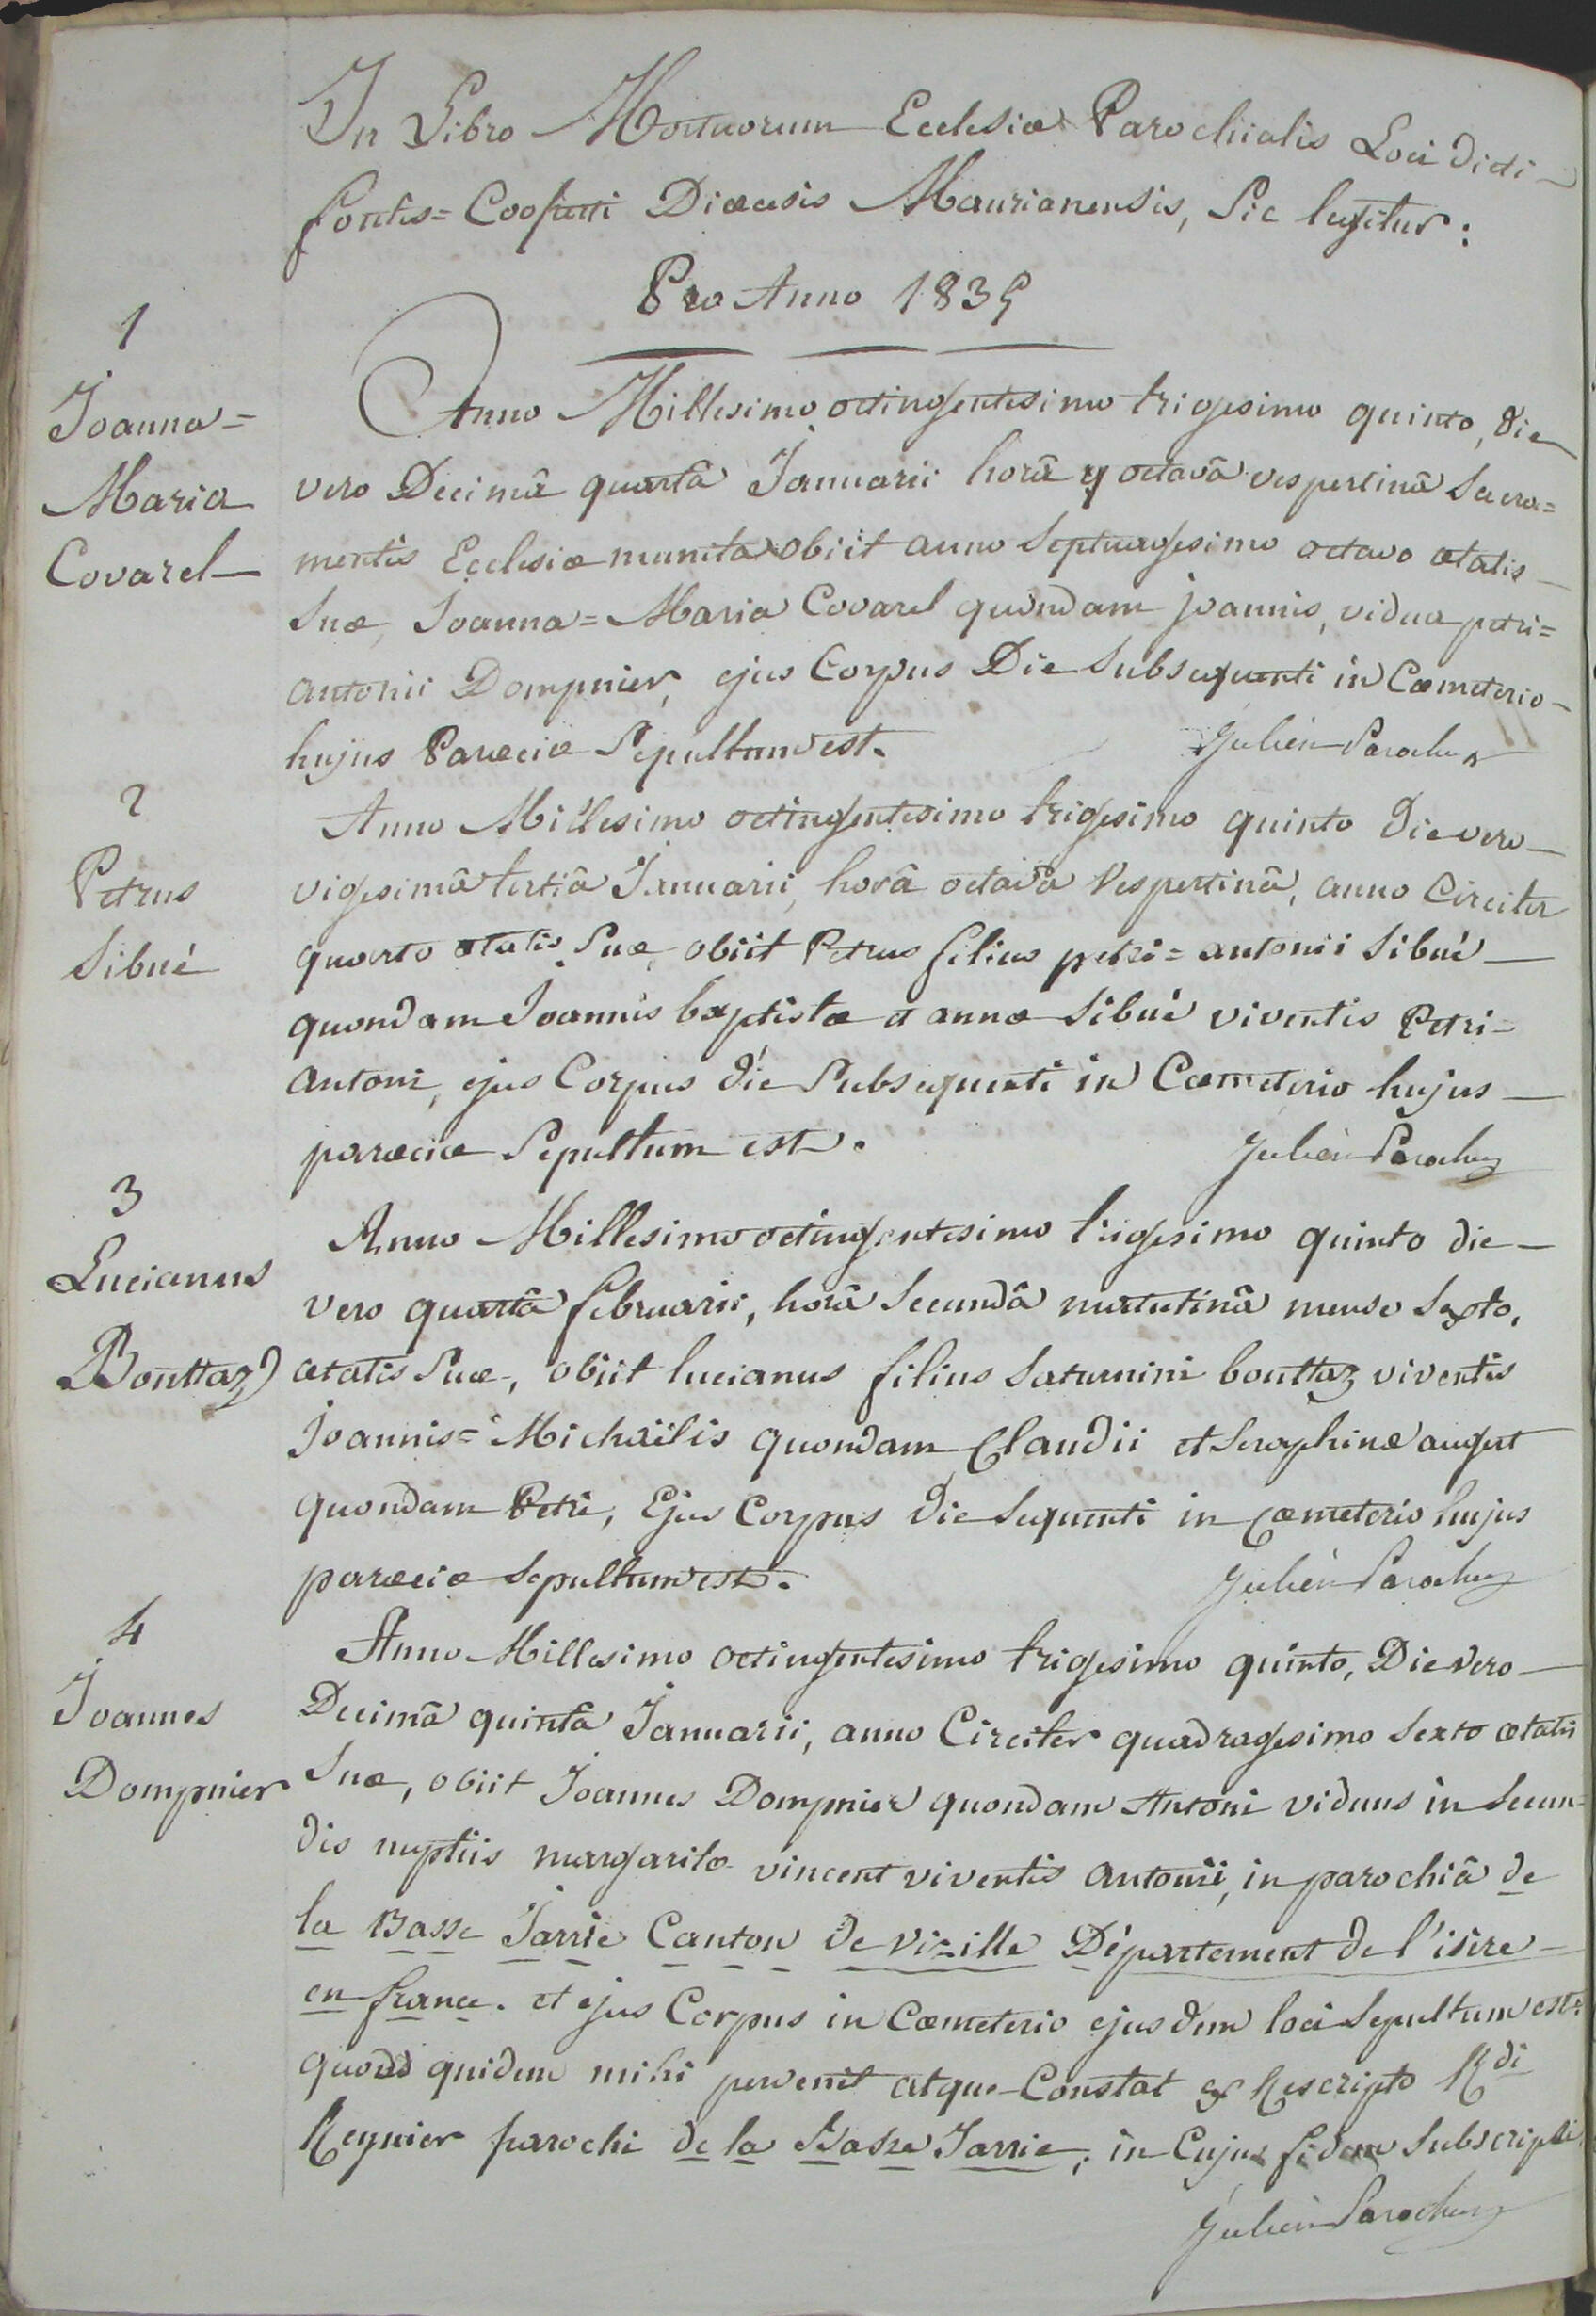 In Libro Mortuorum Ecclesiæ Parochialis Loci Dicti
fontis=Cooperti Diæcesis Maurianensis, Sic legitur:
Pro Anno 1835
1
Joanna=
Maria
Covarel
Anno Millesimo octingentesimo trigesimo quinto, die
vero Decimâ quartâ Januarii horâ octavâ vespertinâ Sacra=
mentis Ecclesiæ munita obiit anno Septuagesimo octavo ætatis
Suæ, Joanna=Maria Covarel quondam joannis, vidua petri=
antonii Dompnier, ejus Corpus Die Subsequenti in Cæmeterio
hujus Paræciæ Sepultum est.
Julien Parochus
2
Petrus
Sibué
Anno Millesimo octingentesimo trigesimo quinto die vero
vigesimâ tertiâ Januarii, horâ octavâ Vespertinâ, anno Circiter
quarto ætatis Suæ, obiit Petrus filius petri=antonii Sibué
quondam Joannis baptistæ et annæ Sibué viventis Petri=
antoni, ejus Corpus die Subsequenti in Cæmeterio hujus
paræciæ Sepultum est.
Julien Parochus
3
Lucianus
Bouttaz
Anno Millesimo octingentesimo trigesimo quinto die
vero quartâ februarii, horâ Secundâ matutinâ mense Sexto,
ætatis Suæ, obiit lucianus filius Saturnini bouttaz viventis
Joannis=Michaëlis quondam Claudii et Seraphinæ augert
quondam Petri, Ejus Corpus die Sequenti in Cæmeterio hujus
paræciæ Sepultum est.
Julien Parochus
4
Joannes
Dompnier
Anno Millesimo octingentesimo trigesimo quinto, Die vero
Decimâ quintâ Januarii, anno Circiter quadragesimo Sexto ætatis
Suæ, obiit Joannes Dompnier quondam Antoni viduus in Secun=
dis nuptiis margaritæ vincent viventis antonii, in parochiâ de
la Basse Jarrie Canton de vizille Département de l'isère
en france. et ejus Corpus in Cæmeterio ejusdem loci Sepultum est.
quod quidem mihi pervenit atque Constat ex Rescripto Rdi
Reynier parochi de la Basse Jarrie; in Cujus fidem Subscripsi.
Julien Parochus